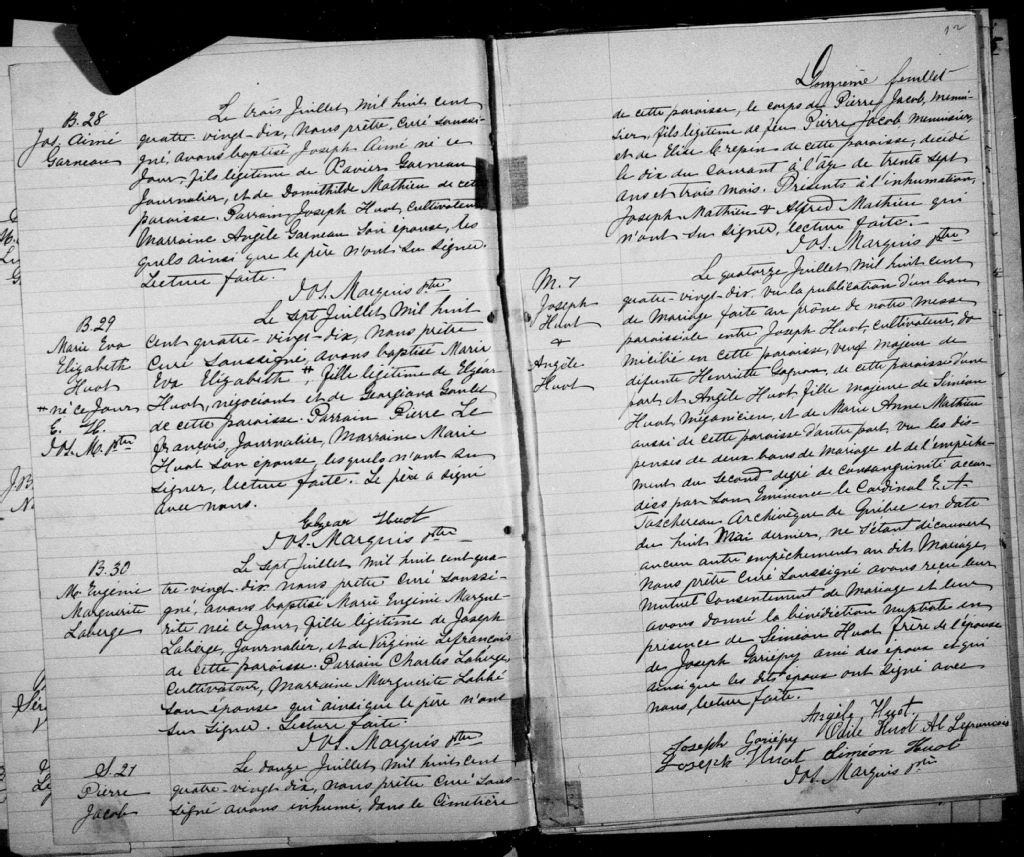 B.28
Jos. Aimé
Garneau
Le trois Juillet mil huit cent
quatre-vingt-dix, Nous prêtre, Curé soussi-
gné, avons baptisé Joseph Aimé né ce
Jour, fils légitime de Xavier Garneau
Journalier, et de Domithilde Mathieu de cette
paroisse. Parrain Joseph Huot, cultivateur
Marraine Angèle Garneau son épouse, les
quels ainsi que le père n'ont su signer.
Lecture faite.
Jos. Marquis ptre
B.29
Marie Eva
Elizabeth
Huot
# né ce Jour
E. H.
Jos. M. ptre
Le sept Juillet mil huit
cent quatre-vingt-dix, nous prêtre
Curé soussigné, avons baptisé Marie
Eva Elizabeth #, fille légitime de Elzear
Huot, négociant et de Georgiana Goulet
de cette paroisse. Parrain Pierre Le
françois, Journalier, Marraine Marie
Huot son épouse, lesquels n'ont su
signer, lecture faite. Le père a signé
avec nous.
Elzear Huot
Jos. Marquis ptre
B.30
Me. Eugénie
Marguerite
Laberge
Le sept Juillet mil huit cent qua-
tre-vingt-dix, nous prêtre Curé soussi-
gné, avons baptisé Marie Eugénie Margue-
rite née ce Jour, fille légitime de Joseph
Laberge, Journalier, et de Virginie Lefrançois
de cette paroisse. Parrain Charles Laberge,
Cultivateur, Marraine Marguerite Labbé
son épouse qui ainsi que le père n'ont
su signer. Lecture faite.
Jos. Marquis ptre
S.21
Pierre
Jacob
Le douze Juillet mil huit cent
quatre-vingt-dix, nous prêtre Curé sous-
signé avons inhumé, dans le Cimetière
12
Douzième feuillet
de cette paroisse, le corps de Pierre Jacob, menui-
sier, fils légitime de feu Pierre Jacob menuisier,
et de Elise Crepin de cette paroisse, décédé
le dix du courant à l'âge de trente sept
ans et trois mois. Présents à l'inhumation,
Joseph Mathieu & Alfred Mathieu qui
n'ont su signer, lecture faite.
Jos. Marquis ptre
M. 7
Joseph
Huot
&
Angèle
Huot
Le quatorze Juillet mil huit cent
quatre-vingt-dix, vu la publication d'un ban
de Mariage faite au prône de notre messe
paroissiale entre Joseph Huot, cultivateur, do
micilié en cette paroisse, veuf majeur de
défunte Henriette Gagnon, de cette paroisse d'une
part et Angèle Huot fille majeure de Siméon
Huot, mécanicien, et de Marie Anne Mathieu
aussi de cette paroisse d'autre part, vu les dis-
penses de deux bans de mariage et de l'empêche-
ment du second degré de consanguinité accor-
dées par son Eminence le Cardinal E. A
Taschereau Archevêque de Québec en date
du huit Mai dernier, ne s'étant découvert
aucun autre empêchement au dit Mariage
Nous prêtre Curé soussigné avons reçu leur
mutuel consentement de Mariage et leur
avons donné la bénédiction nuptiale en
présence de Siméon Huot frère de l'épouse
de Joseph Gariépy ami des époux et qui
ainsi que les dits époux ont signé avec
nous, lecture faite.
Angèle Huot
Joseph Gariépy Odile Huot Al Lefrancois
Joseph Huot Siméon Huot
Jos Marquis ptre